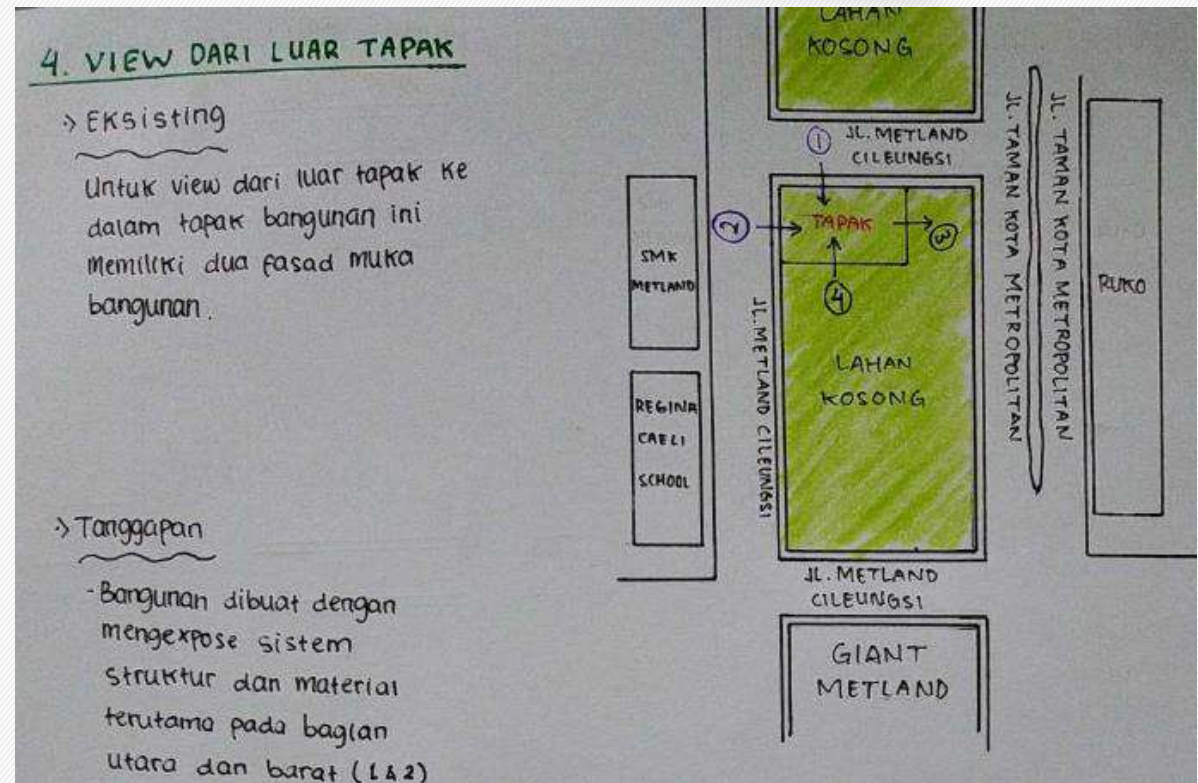 4. VIEW DARI LUAR TAPAK
Eksisting
Untuk view dari luar tapak ke
dalam tapak bangunan ini
memiliki dua fasad muka
bangunan.
Tanggapan
- Bangunan dibuat dengan
mengexpose sistem
struktur dan material
terutama pada bagian
utara dan barat (1 & 2)
LAHAN
KOSONG
1
JL. METLAND
CILEUNGSI
2
TAPAK
3
4
SMK
METLAND
REGINA
CAELI
SCHOOL
JL. METLAND CILEUNGSI
LAHAN
KOSONG
JL. TAMAN KOTA METROPOLITAN
JL. TAMAN KOTA METROPOLITAN
RUKO
JL. METLAND
CILEUNGSI
GIANT
METLAND